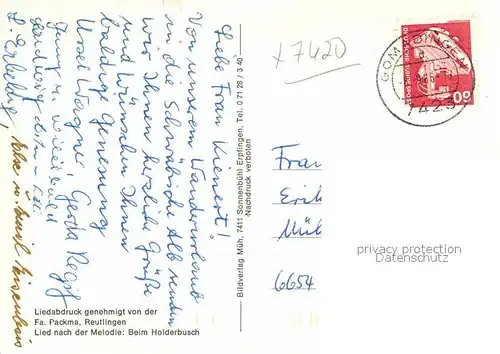 Liebe Frau Kienert!
Von unserem Wanderurlaub
in die Schwäbische Alb senden
wir Ihnen herzliche Grüße
und wünschen Ihnen
baldige Genesung
Ursel Wagner Gerda
Liedabdruck genehmigt von der
Fa. Packma, Reutlingen
Lied nach der Melodie: Beim Holderbusch
Bildverlag Müh, 7411 Sonnenbühl Erpfingen, Tel. 0 71 28 / 3 40
Nachdruck verboten
x 7420
GOMADINGEN
7423
60
Frau
Erik
Mül
6654
privacy protection
Datenschutz